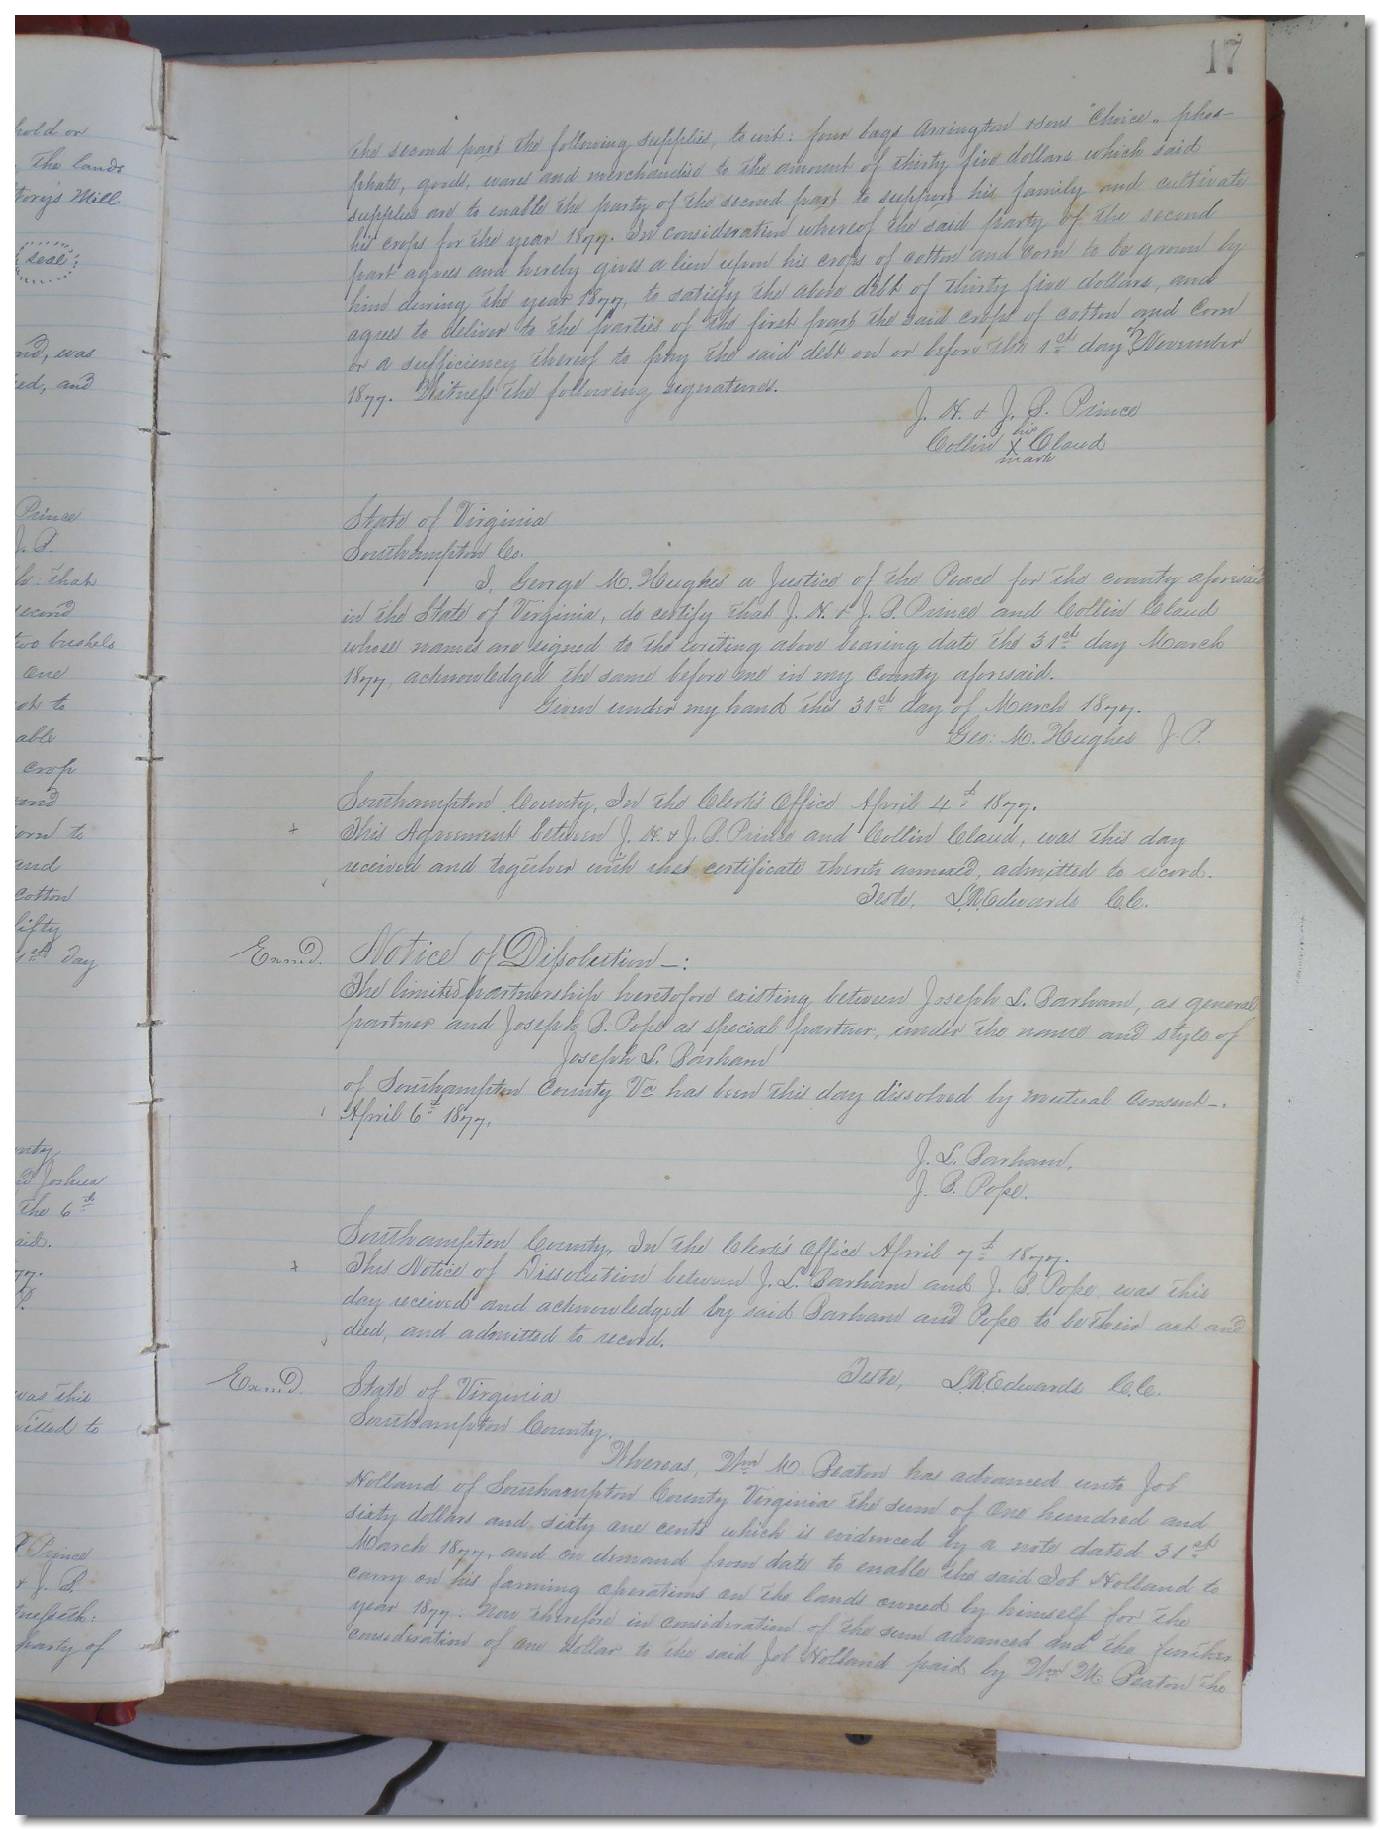 17
the second part the following supplies, to wit: four bags Arrington & sons "Choice" phos-
phate, goods, wares and merchandise to the amount of thirty five dollars which said
supplies are to enable the party of the second part to support his family and cultivate
his crops for the year 1877. In consideration whereof the said party of the second
part agrees and hereby gives a lien upon his crops of cotton and corn to be grown by
him during the year 1877, to satisfy the above debt of thirty five dollars, and
agrees to deliver to the parties of the first part the said crops of cotton and corn
or a sufficiency thereof to pay the said debt on or before the 1st day of November
1877. Witness the following signatures.
J. H. & J. B. Prince
his
Collin X Claud
mark
State of Virginia
Southampton Co.
I, George M. Hughes a Justice of the Peace for the county aforesaid
in the State of Virginia, do certify that J. H. & J. B. Prince and Collin Claud
whose names are signed to the writing above bearing date the 31st day March
1877, acknowledged the same before me in my County aforesaid.
Given under my hand this 31st day of March 1877.
Geo: M. Hughes J. P.
Southampton County, In the Clerk's Office April 4th 1877.
This Agreement between J. H. & J. B. Prince and Collin Claud, was this day
received and together with the certificate thereto annexed, admitted to record.
Teste, L.R. Edwards C.C.
Exmd. Notice of Dissolution-:
The limited partnership heretofore existing between Joseph L. Barham, as general
partner and Joseph B. Pope as special partner, under the name and style of
Joseph L. Barham
of Southampton County Va has been this day dissolved by mutual consent-.
April 6th 1877.
J. L. Barham,
J. B. Pope.
Southampton County, In the Clerk's Office April 7th 1877.
This Notice of Dissolution between J. L. Barham and J. B. Pope, was this
day received and acknowledged by said Barham and Pope to be their act and
deed, and admitted to record.
Teste, L.R. Edwards C.C.
Exmd. State of Virginia
Southampton County,
Whereas, Wm M. Beaton has advanced unto Job
Holland of Southampton County Virginia the sum of One hundred and
sixty dollars and sixty one cents which is evidenced by a note dated 31st
March 1877, and on demand from date to enable the said Job Holland to
carry on his farming operations on the lands owned by himself for the
year 1877. Now therefore in consideration of the sum advanced and the further
consideration of one dollar to the said Job Holland paid by Wm M. Beaton the